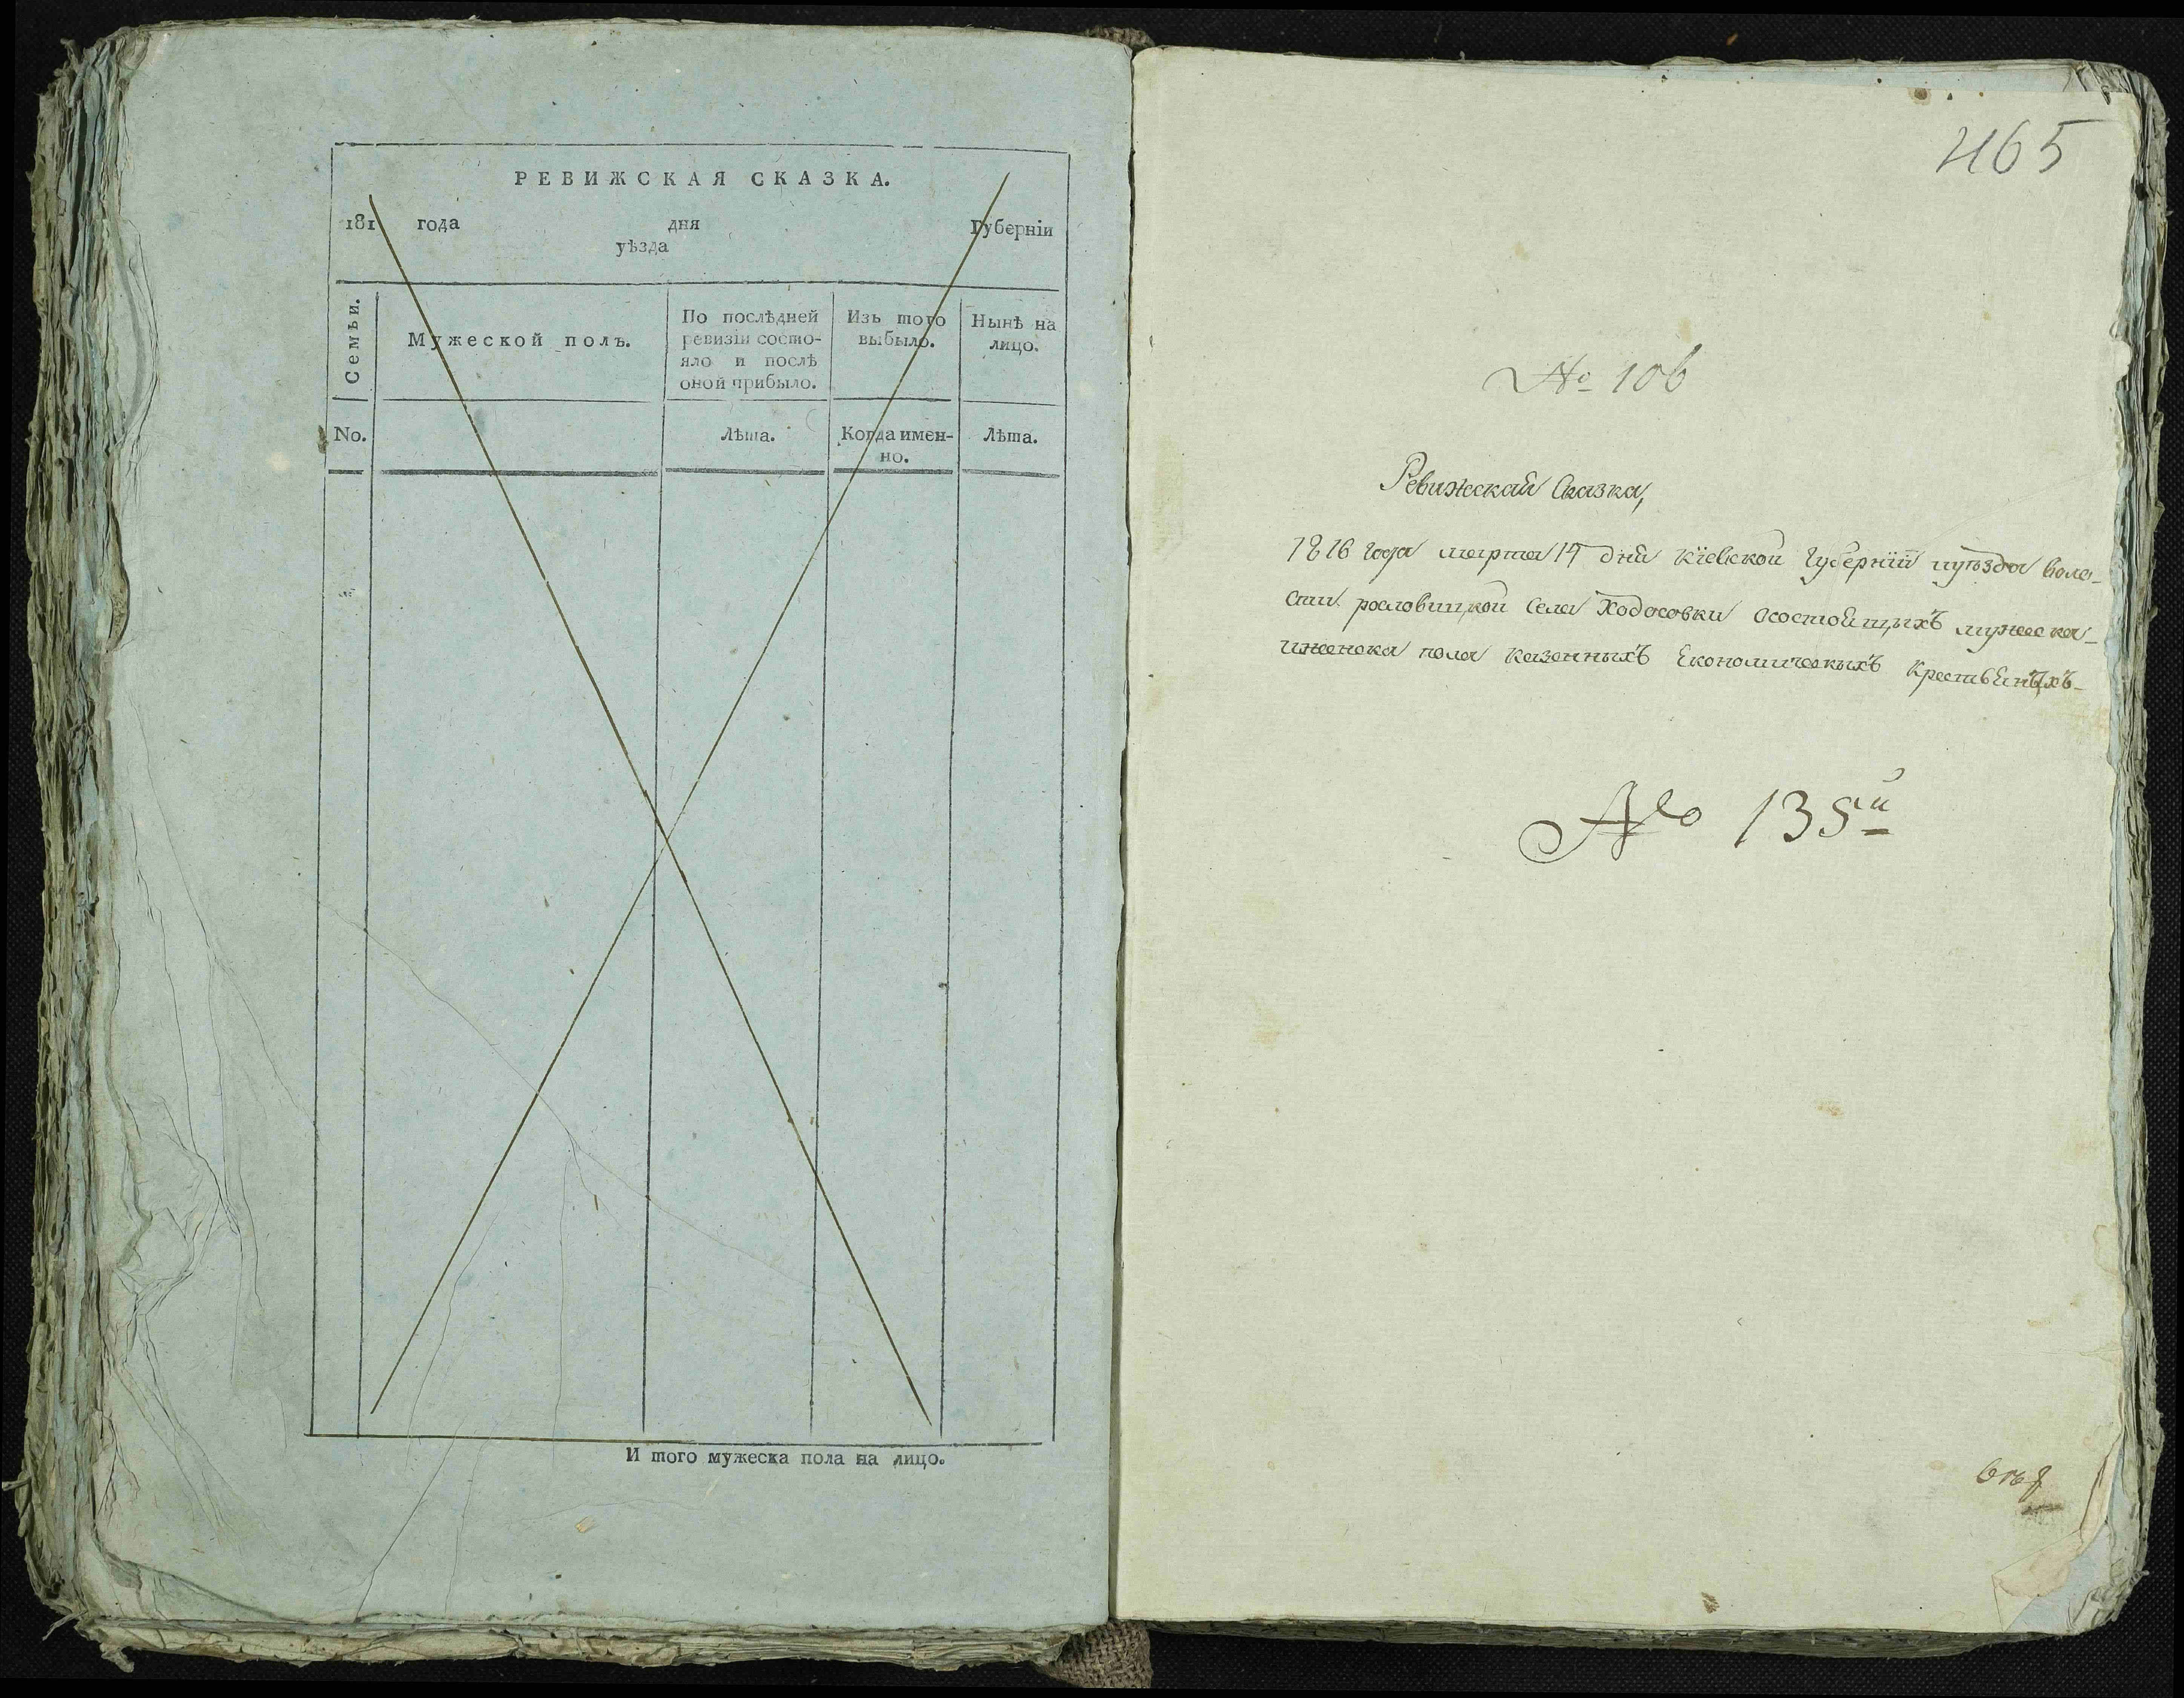 РЕВИЖСКАЯ СКАЗКА.
181 года дня Губерніи
уѣзда
Семьи.
Мужеской полъ.
По послѣдней
ревизіи состо-
яло и послѣ
оной прибыло.
Изъ того
выбыло.
Нынѣ на
лицо.
No.
Лѣта.
Когда имен-
но.
Лѣта.
И того мужеска пола на лицо.
465
№ 106
Ревижская Сказка,
1816 года марта 14 дня Кіевской Губерніи иуѣзда воло-
сти рославицкой села Ходосовки осостоящихъ мужеска-
иженска пола казенныхъ Економическихъ Крестьянехъ-
№ 135й